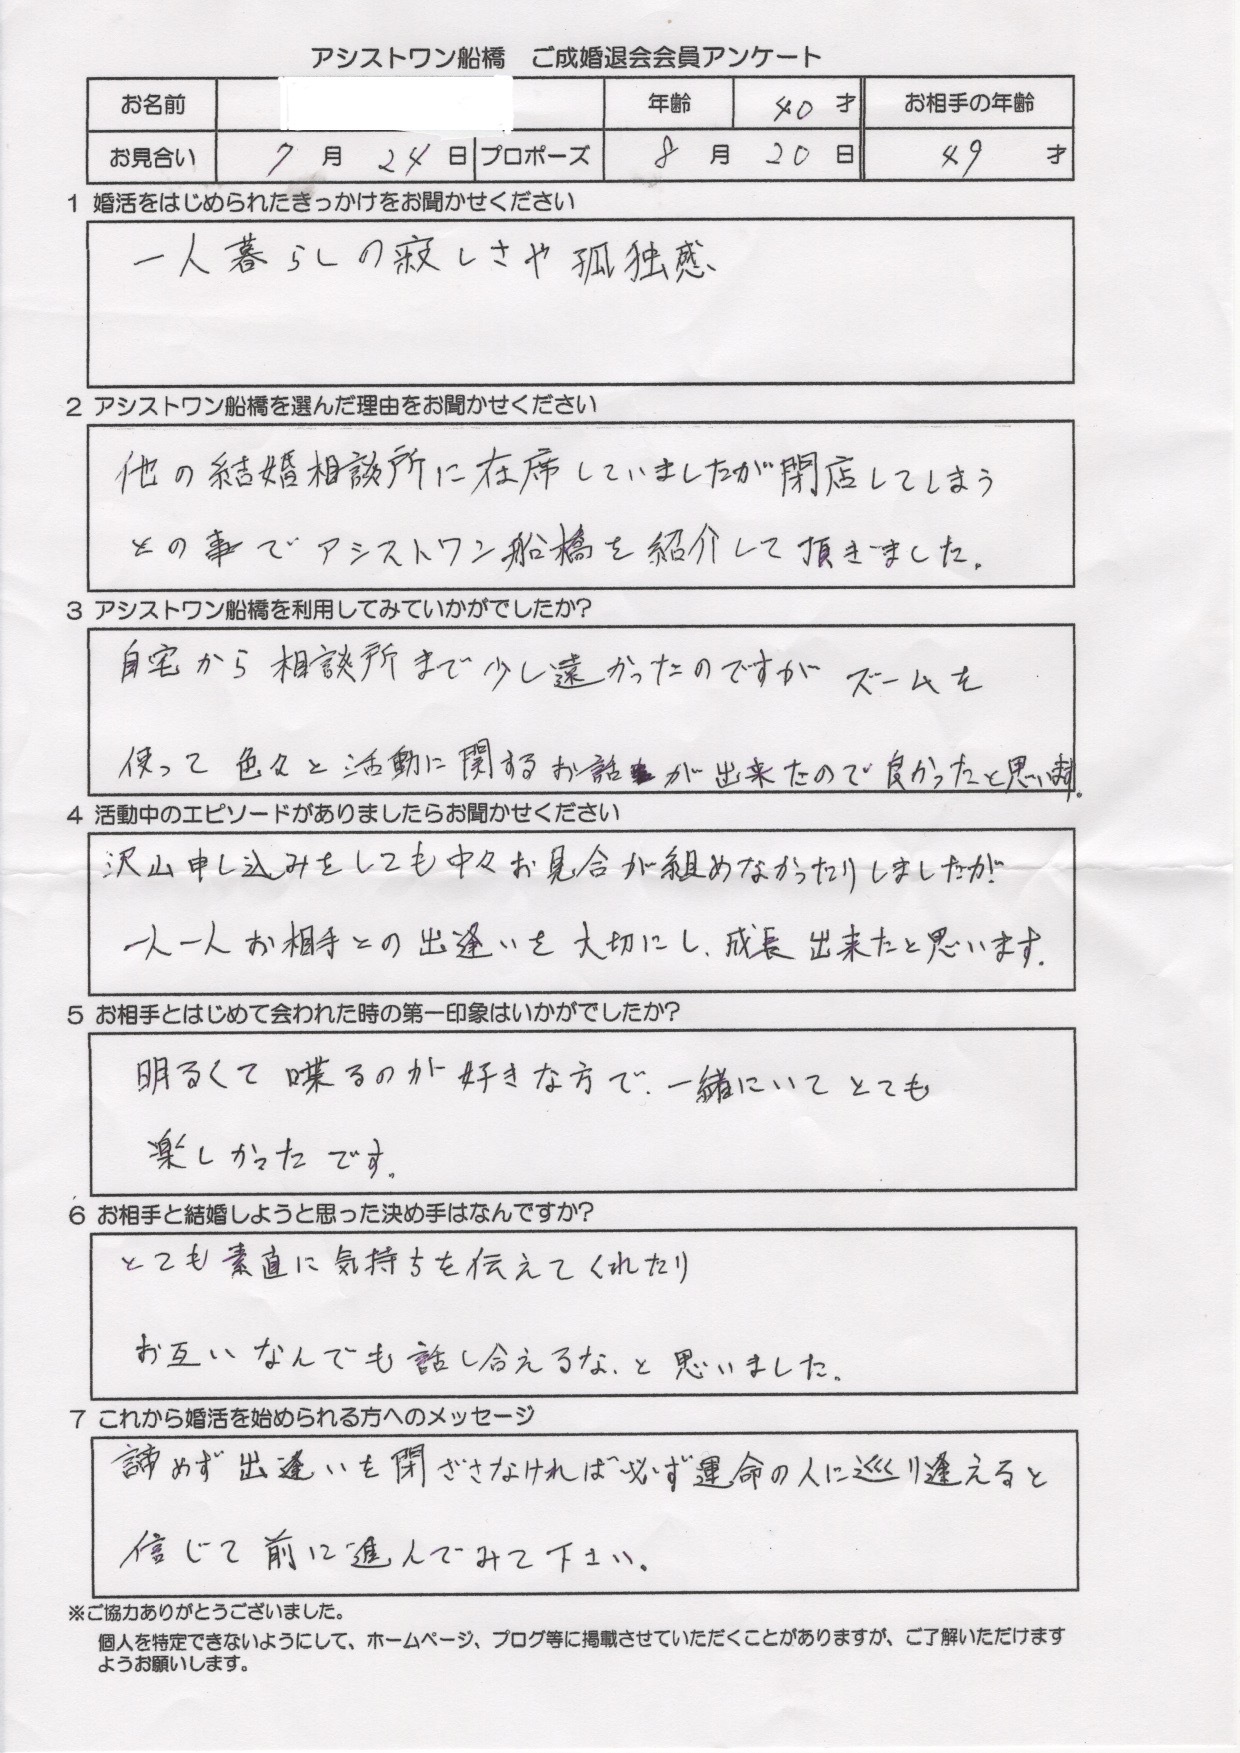 アシストワン船橋　ご成婚退会会員アンケート
お名前 年齢 40 才 お相手の年齢
お見合い 7 月 24 日 プロポーズ 8 月 20 日 49 才
1 婚活をはじめられたきっかけをお聞かせください
一人暮らしの寂しさや孤独感、
2 アシストワン船橋を選んだ理由をお聞かせください
他の結婚相談所に在席していましたが閉店してしまう
との事でアシストワン船橋を紹介して頂きました。
3 アシストワン船橋を利用してみていかがでしたか?
自宅から相談所まで少し遠かったのですが ズームを
使って色々と活動に関するお話が出来たので良かったと思います。
4 活動中のエピソードがありましたらお聞かせください
沢山申し込みをしても中々お見合が組めなかったりしましたが
一人一人お相手との出逢いを大切にし、成長出来たと思います。
5 お相手とはじめて会われた時の第一印象はいかがでしたか?
明るくて喋るのが好きな方で、一緒にいてとても
楽しかったです。
6 お相手と結婚しようと思った決め手はなんですか?
とても素直に気持ちを伝えてくれたり
お互いなんでも話し合えるな、と思いました。
7 これから婚活を始められる方へのメッセージ
諦めず出逢いを閉ざさなければ必ず運命の人に巡り逢えると
信じて前に進んでみて下さい。
※ご協力ありがとうございました。
個人を特定できないようにして、ホームページ、ブログ等に掲載させていただくことがありますが、ご了解いただけます
ようお願いします。